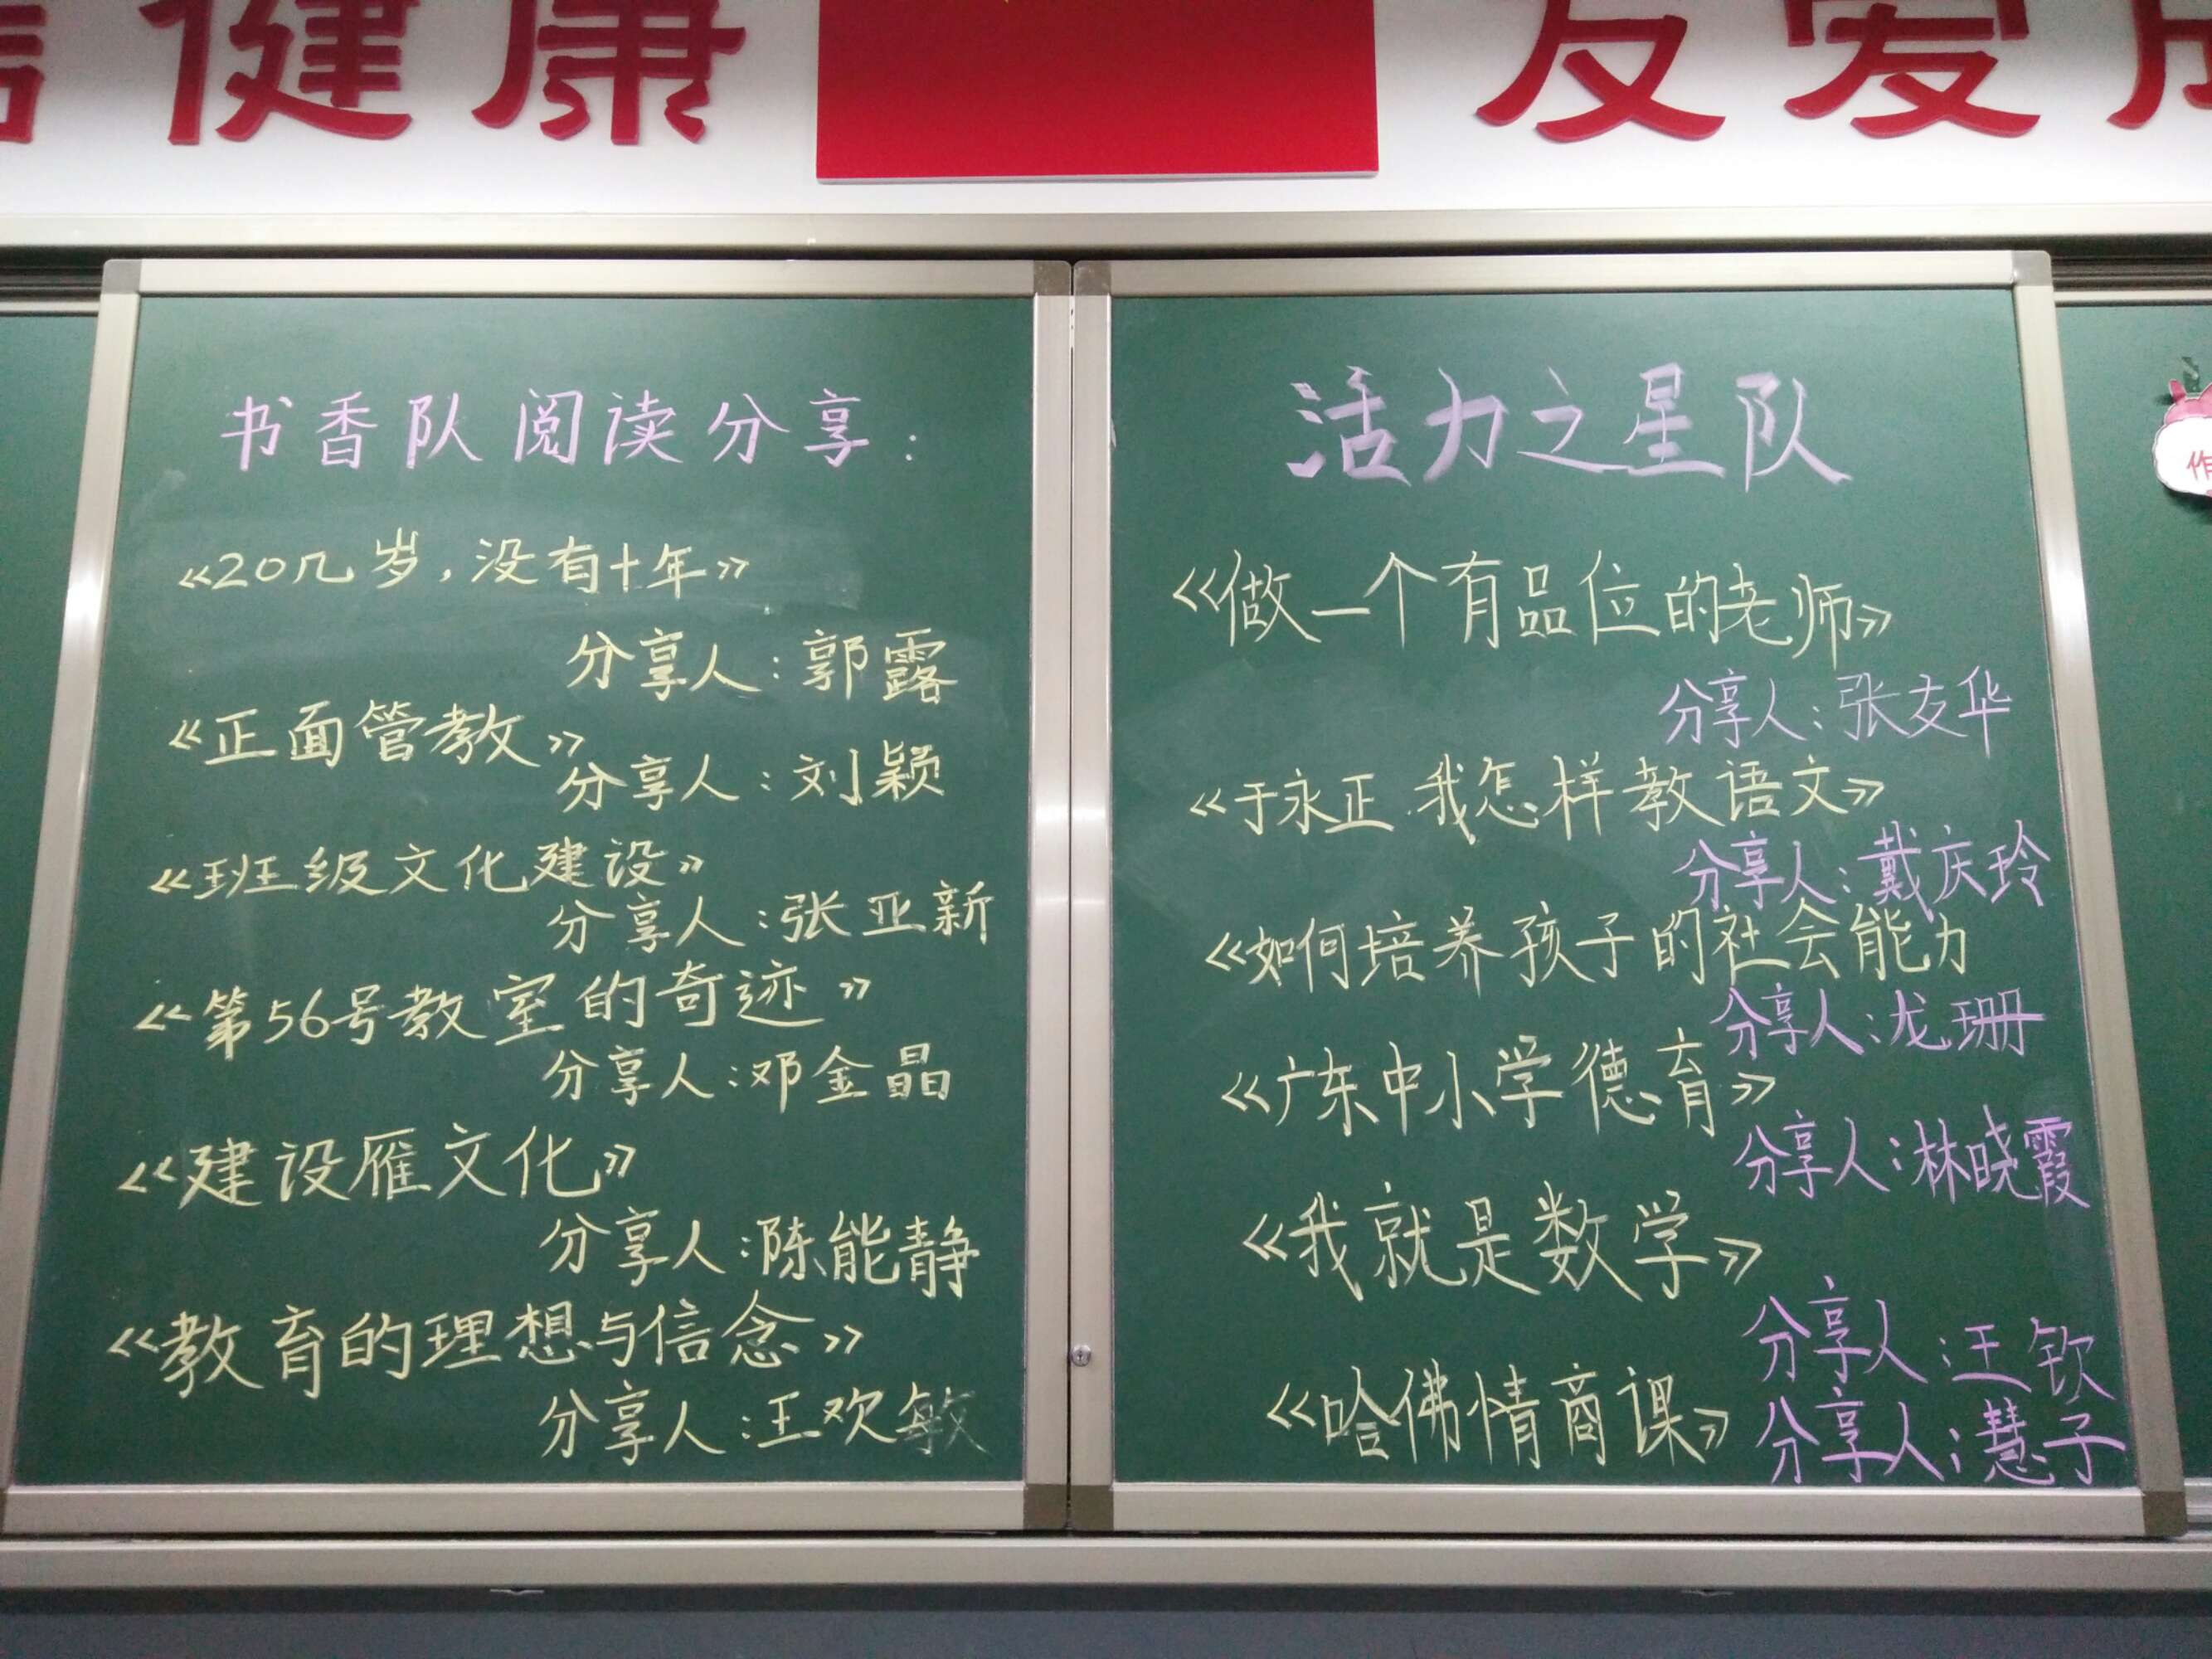 健康
友爱
作
书香队阅读分享:
《20几岁,没有十年》
分享人:郭露
《正面管教》
分享人:刘颖
《班级文化建设》
分享人:张亚新
《第56号教室的奇迹》
分享人:邓金晶
《建设雁文化》
分享人:陈能静
《教育的理想与信念》
分享人:王欢敏
活力之星队
《做一个有品位的老师》
分享人:张友华
《于永正我怎样教语文》
分享人:戴庆玲
《如何培养孩子的社会能力
分享人:龙珊
《广东中小学德育》
分享人:林晓霞
《我就是数学》
分享人:王钦
《哈佛情商课》
分享人:慧子